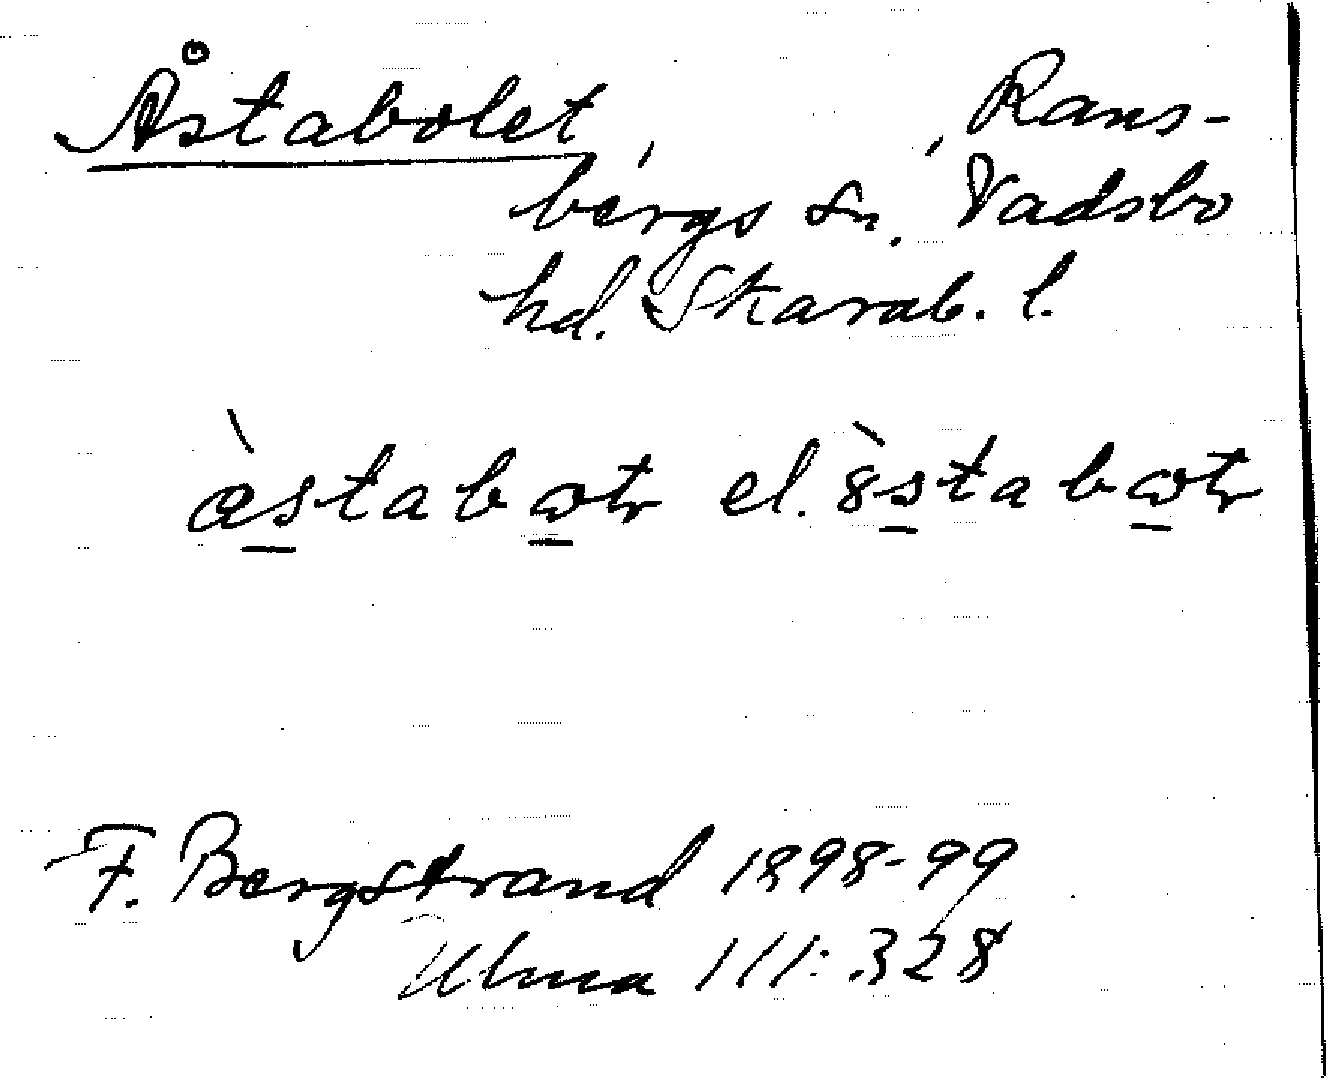 Åstabolet, , Rans-
bergs sn. Vadsbo
hd. Skarab. l.
àstabɷtr el. 8̀stabɷtr
F. Bergstrand 1898-99
Ulma 111:328